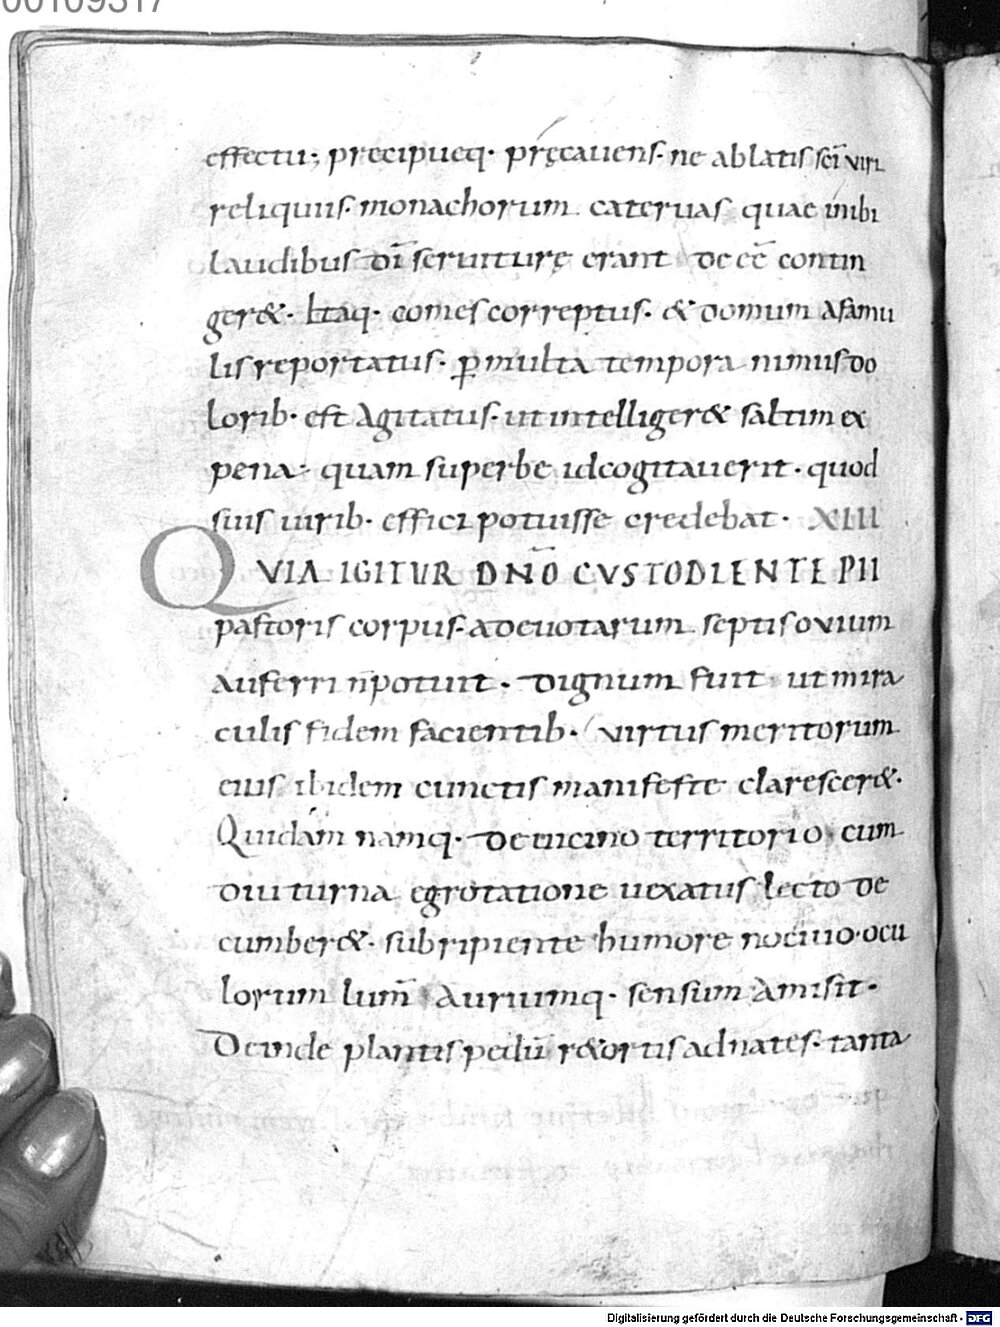 00109317
effectu; precipueq· pręcauens· ne ablatis scī viri
reliquiis· monachorum cateruas quae inibi
laudibus dī seruiturę erant de eē contin
ger&· Itaq· comes correptus· & domum a famu
lis reportatus· p̱ multa tempora nimiis do
lorib· est agitatus· ut intelliger& saltim ex
pena· quam superbe id cogitauerit· quod
suis uirib· effici potuisse credebat· XIIII
QVIA IGITUR DÑO CVSTODIENTE PII
pastoris corpus· a deuotarum septis ovium
auferri n̄ potuit· dignum fuit ut mira
culis fidem facientib· virtus meritorum
eius ibidem cunctis manifeste claresceret&·
Quidam namq· de uicino territorio, cum
diuturna egrotatione uexatus lecto de
cumber&· subripiente humore nociuo· ocu
lorum lum̄ auriumq· sensum amisit·
Deinde plantis pedū r&ortis ad nates· tanta
Digitalisierung gefördert durch die Deutsche Forschungsgemeinschaft - DFG